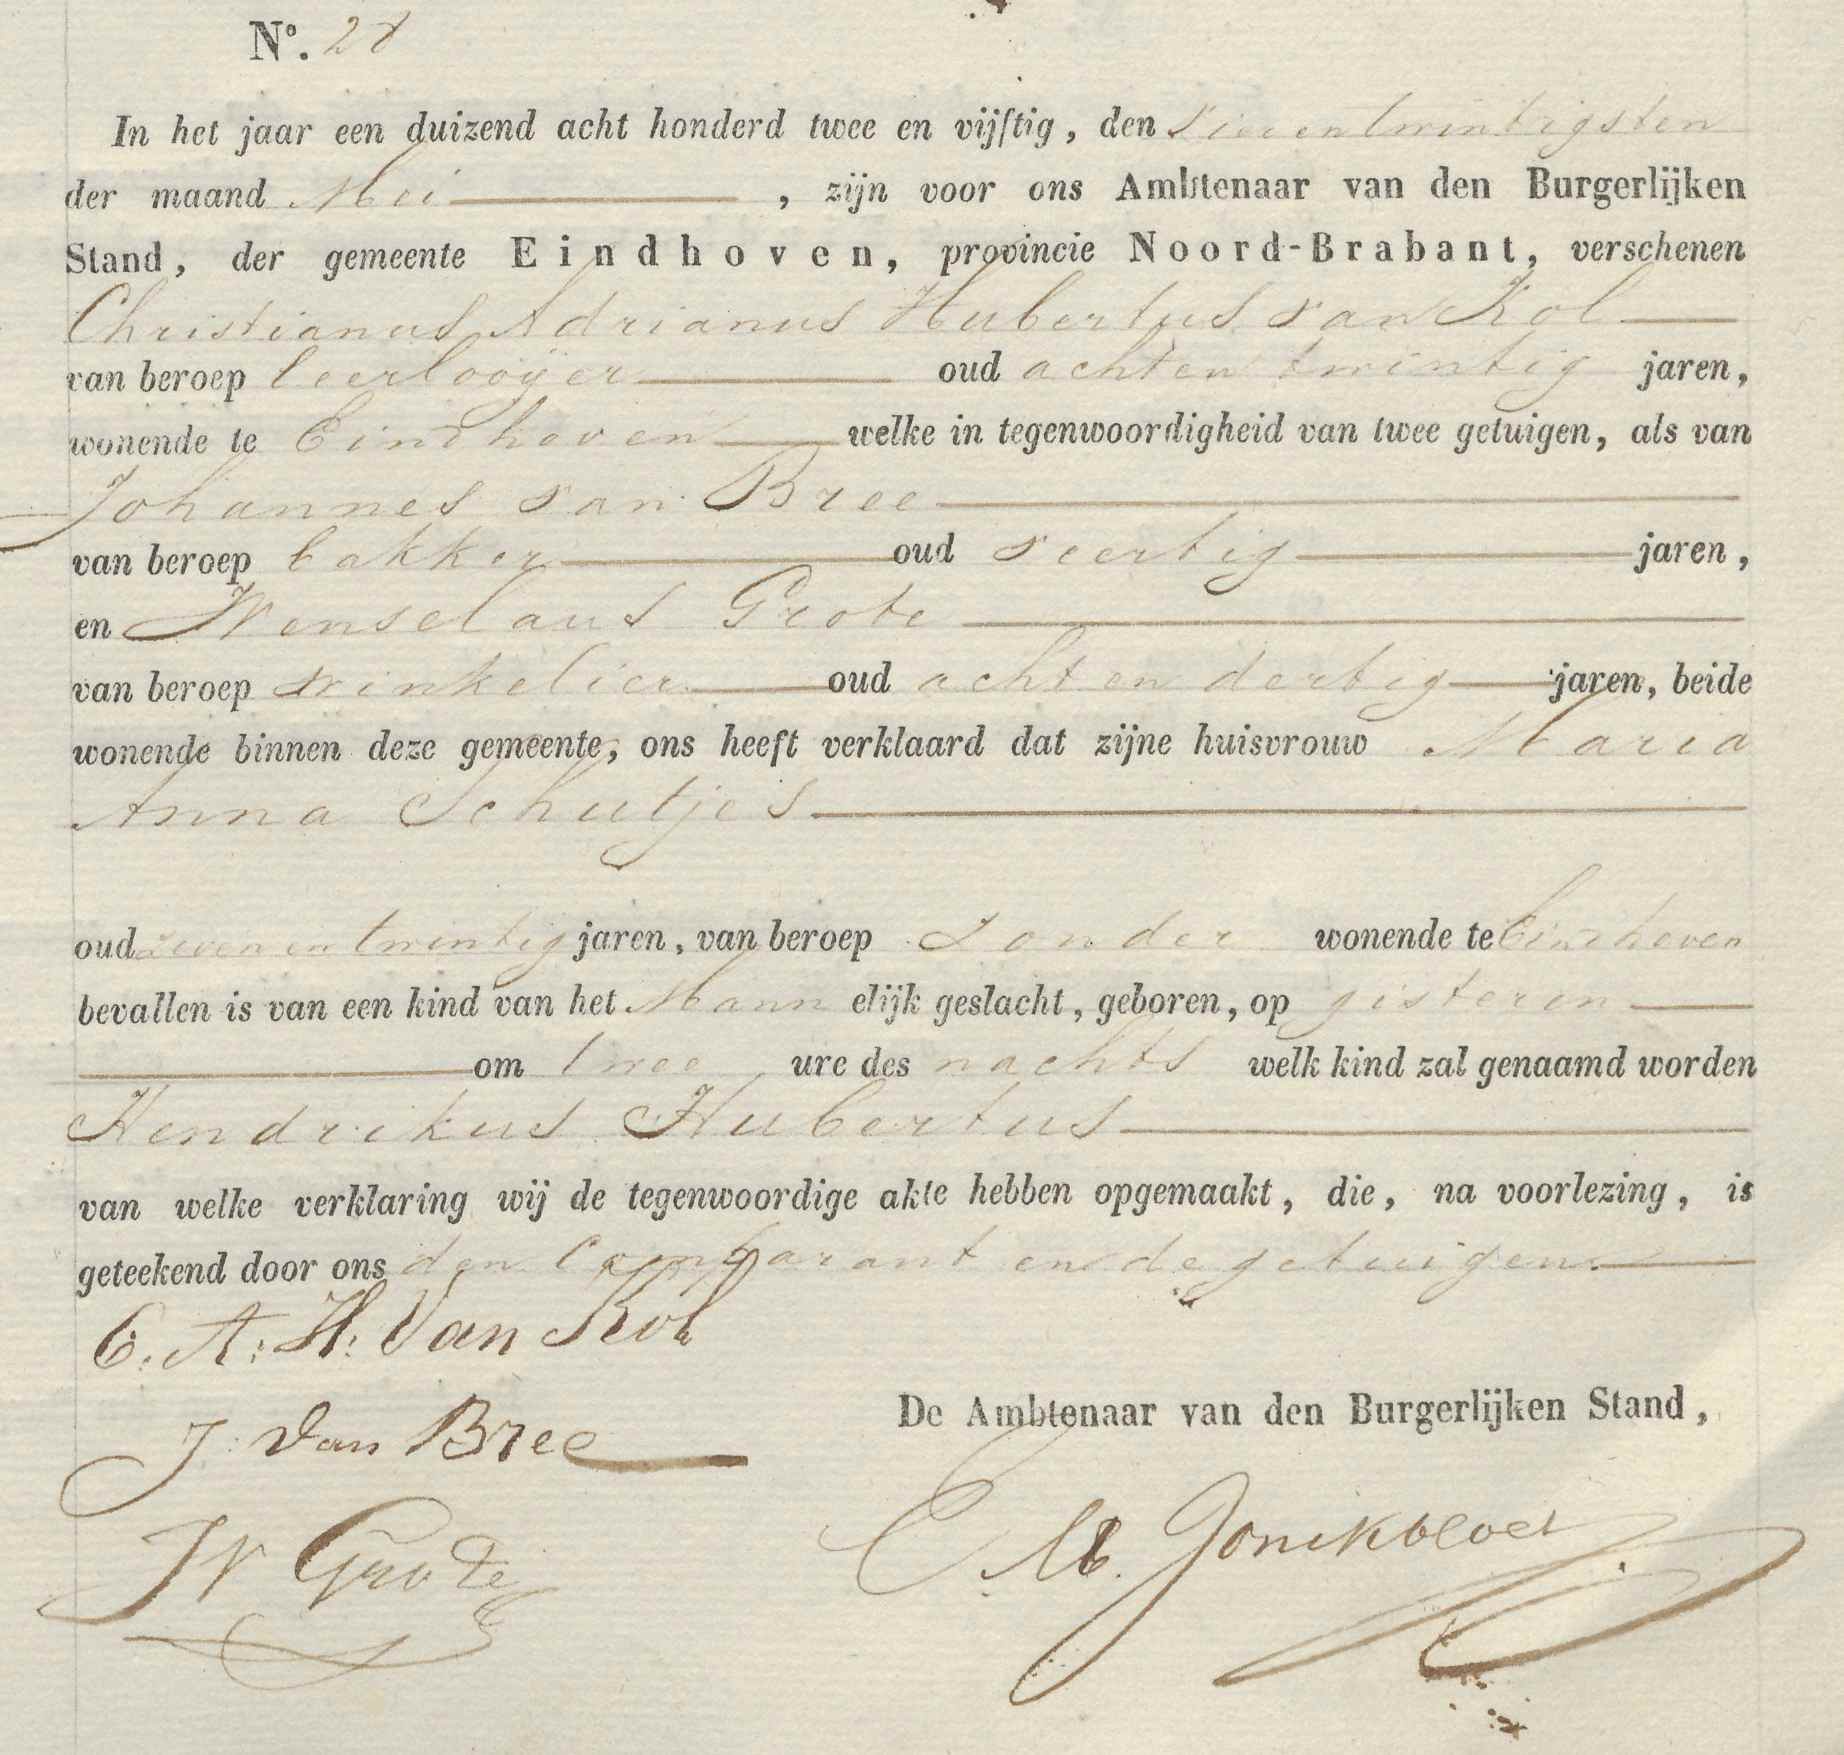 N°. 28
In het jaar een duizend acht honderd twee en vijftig, den vier en twintigsten
der maand Mei , zijn voor ons Ambtenaar van den Burgerlijken
Stand, der gemeente Eindhoven, provincie Noord-Brabant, verschenen
Christianus Adrianus Hubertus van Kol
van beroep leerlooijer oud acht en twintig jaren,
wonende te Eindhoven welke in tegenwoordigheid van twee getuigen, als van
Johannes van Bree
van beroep bakker oud veertig jaren,
en Wenselaus Grote
van beroep winkelier oud acht en dertig jaren, beide
wonende binnen deze gemeente, ons heeft verklaard dat zijne huisvrouw Maria
Anna Schutjes
oud zeven en twintig jaren, van beroep zonder wonende te Eindhoven
bevallen is van een kind van het Mann elijk geslacht, geboren, op gisteren
om twee ure des nachts welk kind zal genaamd worden
Hendrikus Hubertus
van welke verklaring wij de tegenwoordige akte hebben opgemaakt, die, na voorlezing, is
geteekend door ons den Comparant en de getuigen.
C. A: H: Van Kol
J: Van Bree
De Ambtenaar van den Burgerlijken Stand,
W Grote